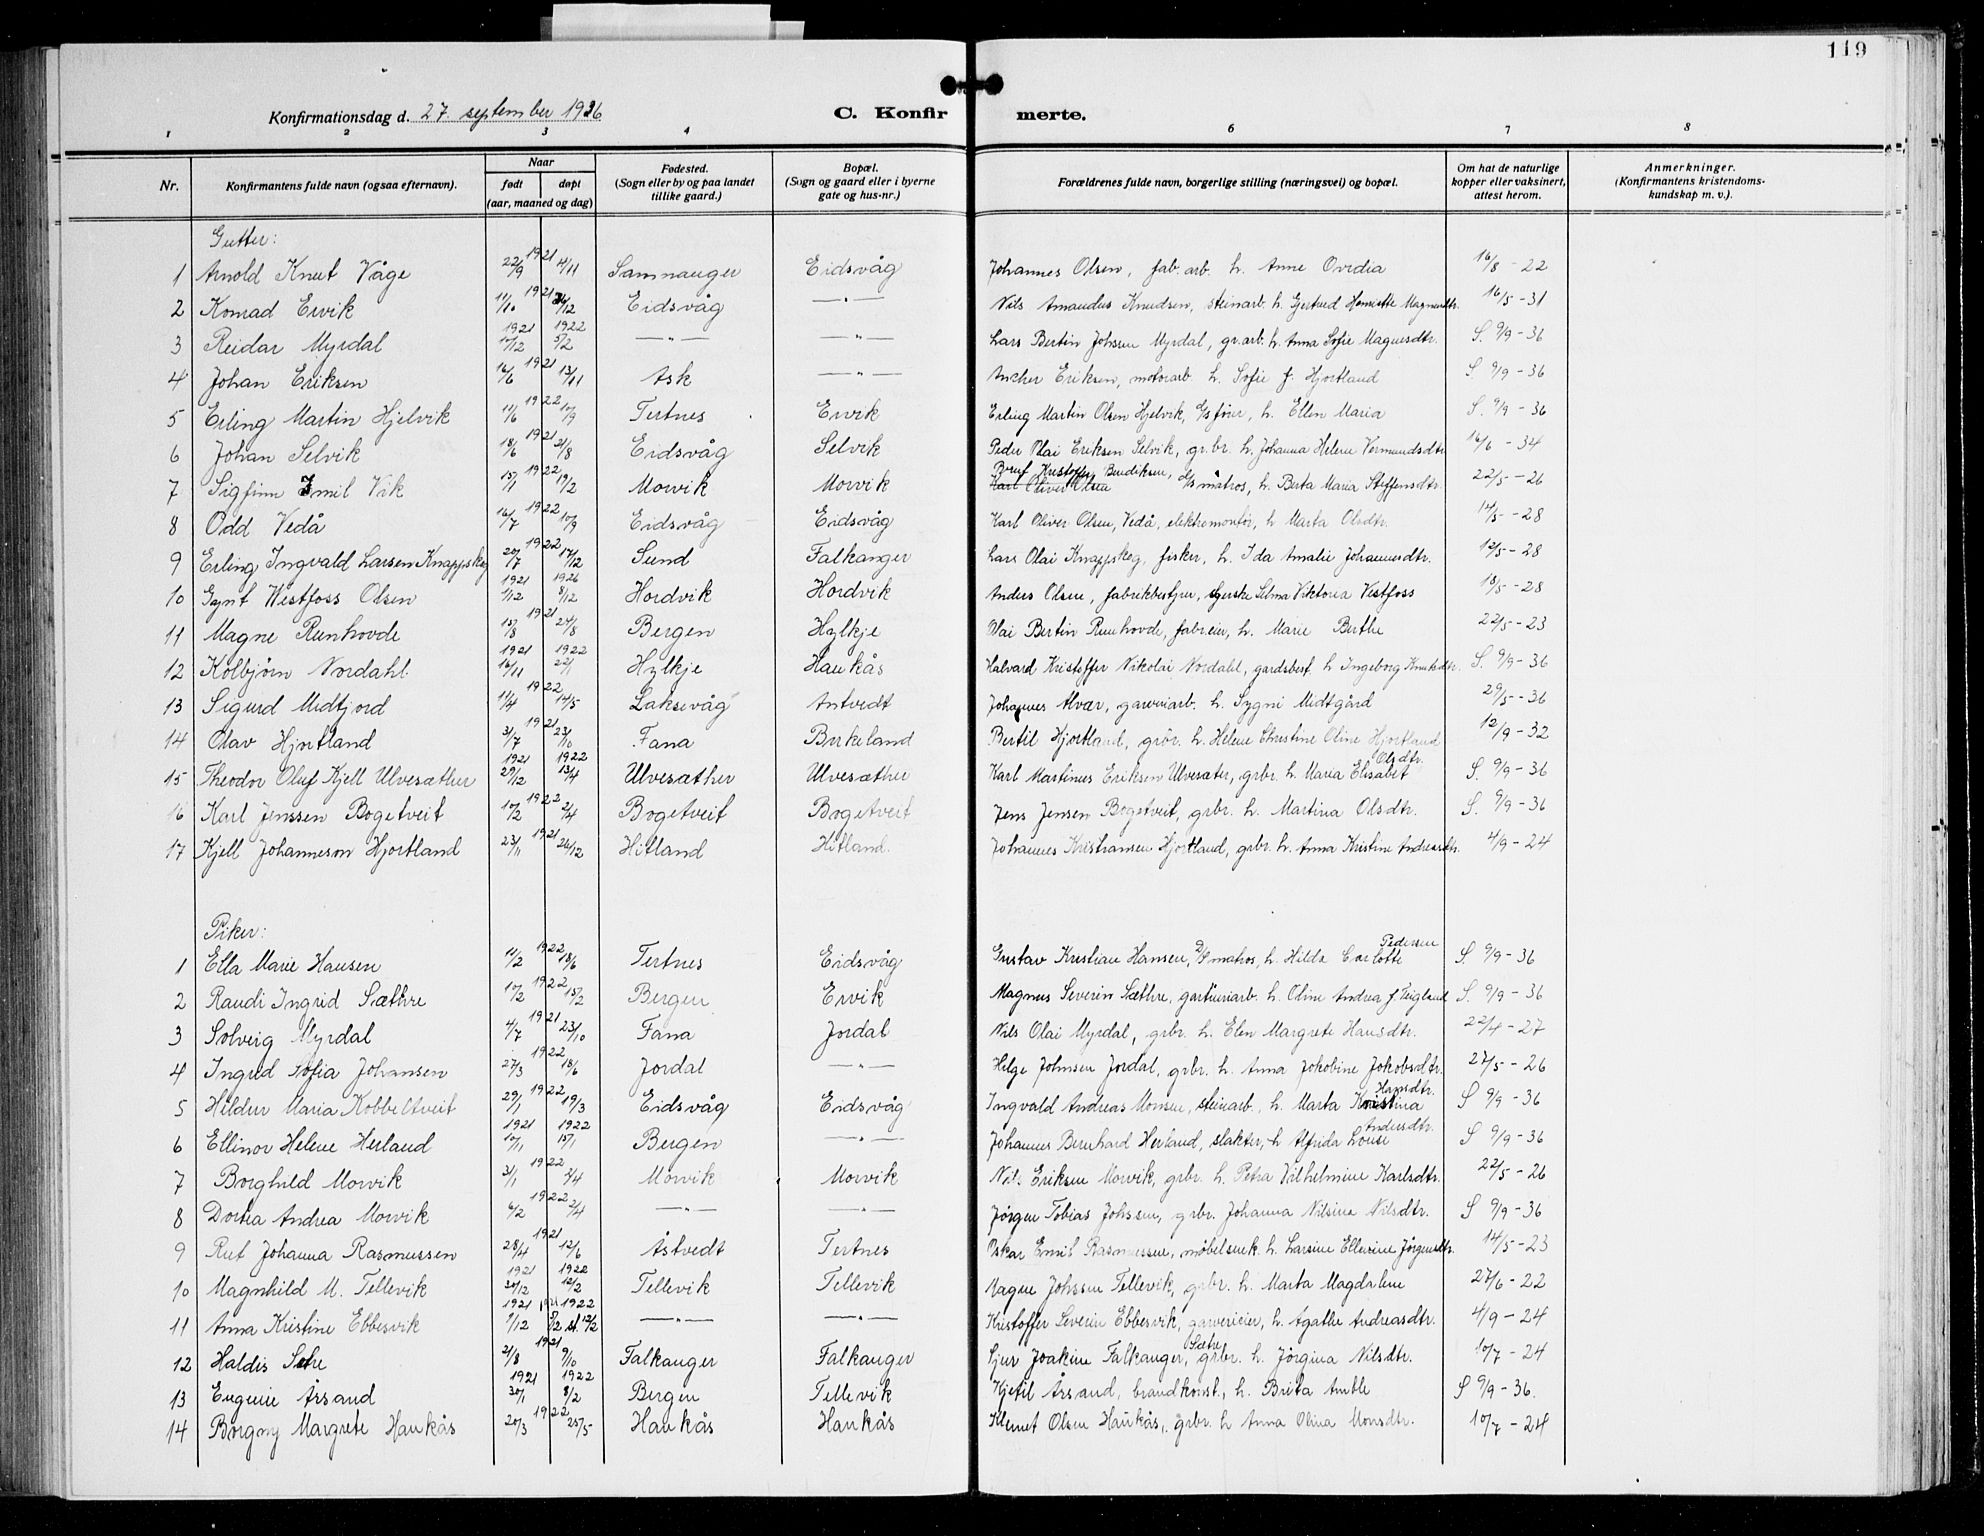 119
Konfirmationsdag d. 27. september 1936
C. Konfirmerte.
1 2 3 4 6 7 8
Nr. Konfirmantens fulde navn (ogsaa efternavn). Naar født døpt (aar, maaned og dag) Fødested. (Sogn eller by og paa landet tillike gaard.) Bopæl. (Sogn og gaard eller i byerne gate og hus-nr.) Forældrenes fulde navn, borgerlige stilling (næringsvei) og bopæl. Om hat de naturlige kopper eller vaksinert, attest herom. Anmerkninger. (Konfirmantens kristendomskundskap m. v.).
Gutter:
1 Arnold Knut Våge 22/9 1921 4/11 Samnanger Eidsvåg Johannes Olsen, fab. arb. h. Anne Ovidia 16/8 - 22
2 Konrad Ervik 11/10 1921 26/12 Eidsvåg —"— Nils Amandus Knudsen, steinarb. h. Gjertrud Henriette Magnusdtr. 16/5 - 31
3 Reidar Myrdal 1921 10/12 1922 5/2 —"— —"— Lars Bertin Johnsen Myrdal, gr.arb. h. Anna Sofie Magnusdtr. S. 9/9 - 36
4 Johan Eriksen 16/6 1921 13/11 Ask —"— Ancher Eriksen, motorarb. h. Sofie f. Hjortland S. 9/9 - 36
5 Erling Martin Hjelvik 11/6 1922 10/9 Tertnes Ervik Erling Martin Olsen Hjelvik, h. Ellen Maria S. 9/9 - 36
6 Johan Selvik 18/6 1921 21/8 Eidsvåg Selvik Peder Olai Eriksen Selvik, gr.br. h. Johanna Helene Vermundsdtr. 16/6 - 34
7 Sigfinn Emil Vik 15/1 1922 19/2 Morvik Morvik Karl Oliver Olsen Kristoffer Bendiksen, matros, h. Berta Maria Steffensdtr. 22/5 - 26
8 Odd Vedå 16/7 1922 10/9 Eidsvåg Eidsvåg Karl Oliver Olsen, Vedå, elektromontør, h. Marta Olsdtr. 14/5 - 28
9 Erling Ingvald Larsen Knappskog 20/7 1922 17/12 Sund Falkanger Lars Olai Knappskog, fisker, h. Ida Amalie Johannesdtr. 12/5 - 28
10 Gynt Westfoss Olsen 1921 1/12 1926 8/12 Hordvik Hordvik Anders Olsen, fabrikbestyrer, syerske Selma Viktoria Vestfoss 18/5 - 28
11 Magne Runhovde 15/8 1921 24/8 Bergen Hylkje Olai Bertin Runhovde, fabr.eier, h. Marie Berthe 22/5 - 23
12 Kolbjørn Nordahl 1921 16/11 1922 22/1 Hylkje Haukås Halvard Kristoffer Nikolai Nordahl, gardsbest. h. Ingeborg Knutsdtr. S. 9/9 - 36
13 Sigurd Midtfjord 11/4 1922 14/5 Laksevåg Antvedt Johannes Alvær, garveriarb. h. Sygni Midtgård 29/5 - 36
14 Olav Hjortland 3/7 1921 23/10 Fana Birkeland Bertil Hjortland, grbr. h. Helene Christine Oline Hjortland 12/9 - 32
15 Theodor Oluf Kjell Ulvesæther 1921 29/12 1922 13/4 Ulvesæther Ulvesæther Karl Martinus Eriksen Ulvesæter, grbr. h. Maria Elisabet Olsdtr. S. 9/9 - 36
16 Karl Jenssen Bogetveit 10/2 1922 2/4 Bogetveit Bogetveit Jens Jensen Bogetveit, grbr. h. Martina Olsdtr. S. 9/9 - 36
17 Kjell Johannesen Hjortland 23/11 1921 26/12 Hitland Hitland. Johannes Kristiansen Hjortland, grbr. h. Anna Kristine Andreasdtr. 4/9 - 24
Piker:
1 Ella Marie Hansen 11/2 1922 18/6 Tertnes Eidsvåg Gustav Kristian Hansen, matros, h. Hilda Carlotte Pedersen S. 9/9 - 36
2 Randi Ingrid Sæthre 10/2 1922 15/2 Bergen Ervik Magnus Severin Sæthre, gartneriarb. h. Oline Andrea f. Teigland S. 9/9 - 36
3 Solveig Myrdal 4/7 1921 23/10 Fana Jordal Nils Olai Myrdal, grbr. h. Elen Margrete Hansdtr. 22/4 - 27
4 Ingrid Sofia Johansen 27/3 1922 18/6 Jordal —"— Helge Johnsen Jordal, grbr. h. Anna Jakobine Jakobsdtr. 27/5 - 26
5 Hildur Maria Kobbeltveit 29/1 1922 19/3 Eidsvåg Eidsvåg Ingvald Andreas Monsen, steinarb., h. Marta Kristina Hansdtr. S 9/9 - 36
6 Ellinor Helene Herland 1921 10/11 1922 15/1 Bergen —"— Johannes Bernhard Herland, slakter, h. Alfrida Louise Andersdtr. S 9/9 - 36
7 Borghild Morvik 3/1 1922 2/4 Morvik Morvik Nils Eriksen Morvik, grbr. h. Petra Vilhelmine Karlsdtr. 22/5 - 26
8 Dortea Andrea Morvik 6/2 1922 2/4 —"— —"— Jørgen Tobias Johssen, grbr. Johanna Nilsine Nilsdtr. S 9/9 - 36
9 Rut Johanna Rasmussen 28/4 1921 12/6 Åstvedt Tertnes Oskar Emil Rasmussen, møbelsnek. h. Larsine Ellevine Jørgensdtr. 14/5 - 23
10 Magnhild M. Tellevik 1921 30/12 1922 12/2 Tellevik Tellevik Magne Johssen Tellevik, grbr. h. Marta Magdalene 27/6 - 22
11 Anna Kristine Ebbesvik 1921 9/12 1922 st. 12/2 —"— —"— Kristoffer Severin Ebbesvik, garverieier, h. Agathe Andreasdtr. 4/9 - 24
12 Haldis Sætre 21/8 1921 9/10 Falkanger Falkanger Sjur Joakim Falkanger, Sætre grbr. h. Jørgina Nilsdtr. 10/7 - 24
13 Eugenie Årsand 1921 30/1 1922 8/2 Bergen Tellevik Kjetil Årsand, brandkonst., h. Brita Amble S 9/9 - 36.
14 Borgny Margrete Haukås 20/3 1922 25/5 Haukås Haukås Klemet Olsen Haukås, grbr. h. Anna Olina Monsdtr. 10/7 - 24